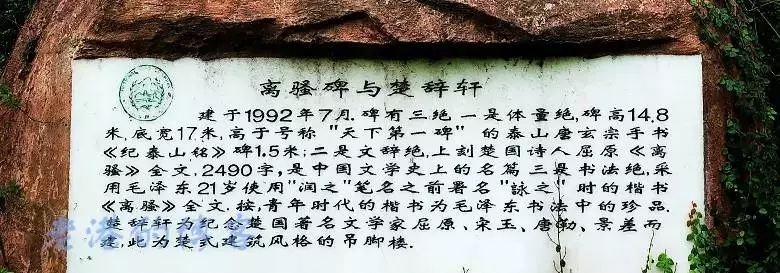 离骚碑与楚辞轩
建于1992年7月.碑有三绝 一是体量绝,碑高14.8
米,底宽17米,高于号称"天下第一碑"的泰山唐玄宗手书
《纪泰山铭》碑1.5米;二是文辞绝,上刻楚国诗人屈原《离
骚》全文,2490字,是中国文学史上的名篇 三是书法绝,采
用毛泽东21岁使用"润之"笔名之前署名"詠之"时的楷书
《离骚》全文.按,青年时代的楷书为毛泽东书法中的珍品.
楚辞轩为纪念楚国著名文学家屈原、宋玉、唐勒、景差而
建此为楚式建筑风格的吊脚楼.